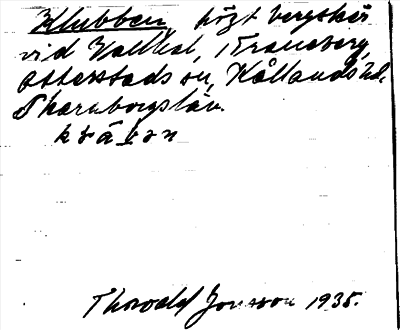 Klubben, högt bergskär
vid Valhal, Traneberg,
Otterstads sn, Kållands hd,
Skaraborgs län.
k t ä b ɜ n
Thorvald Jonsson 1935.